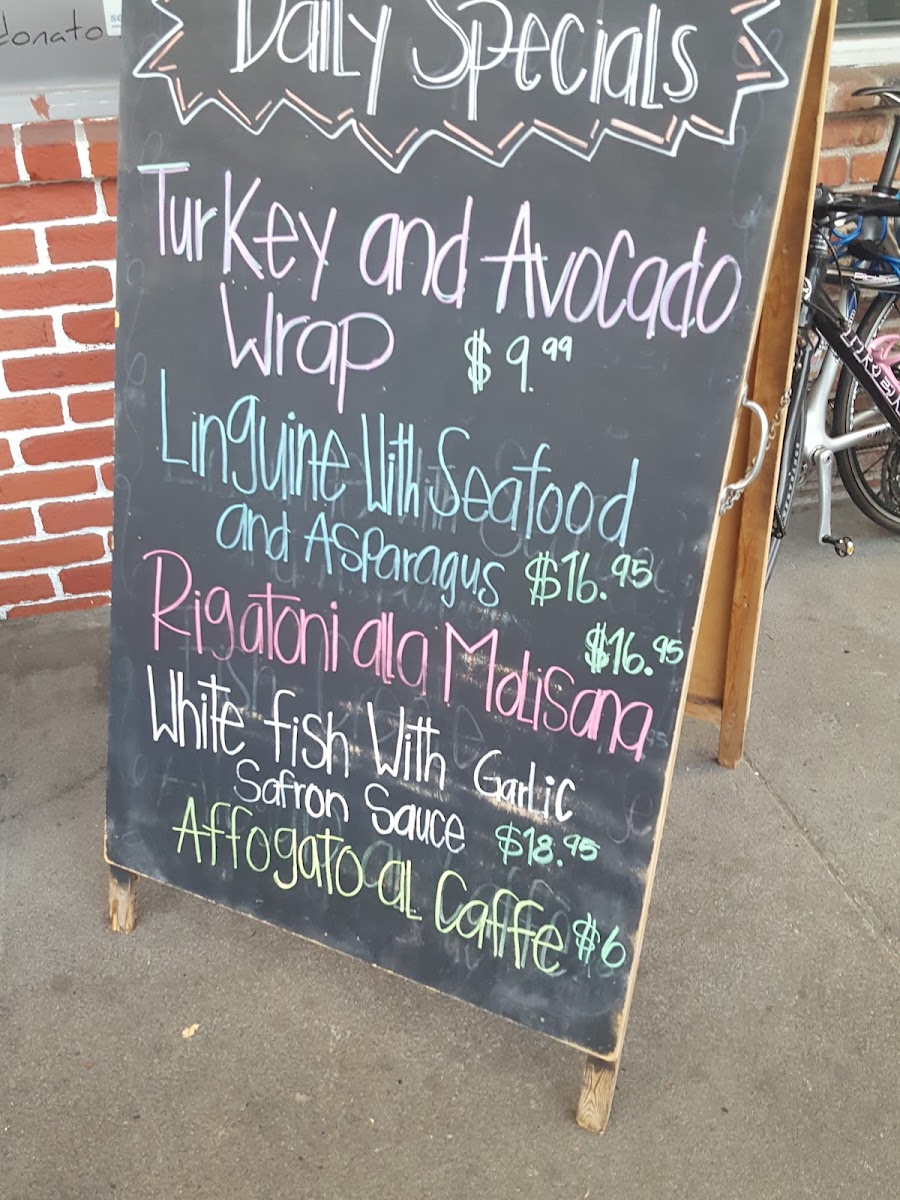 donato
Daily Specials
Turkey and Avocado
Wrap $9.99
Linguine With Seafood
and Asparagus $16.95
Rigatoni alla Molisana $16.95
White fish With Garlic
Safron Sauce $18.95
Affogato al Caffe $6